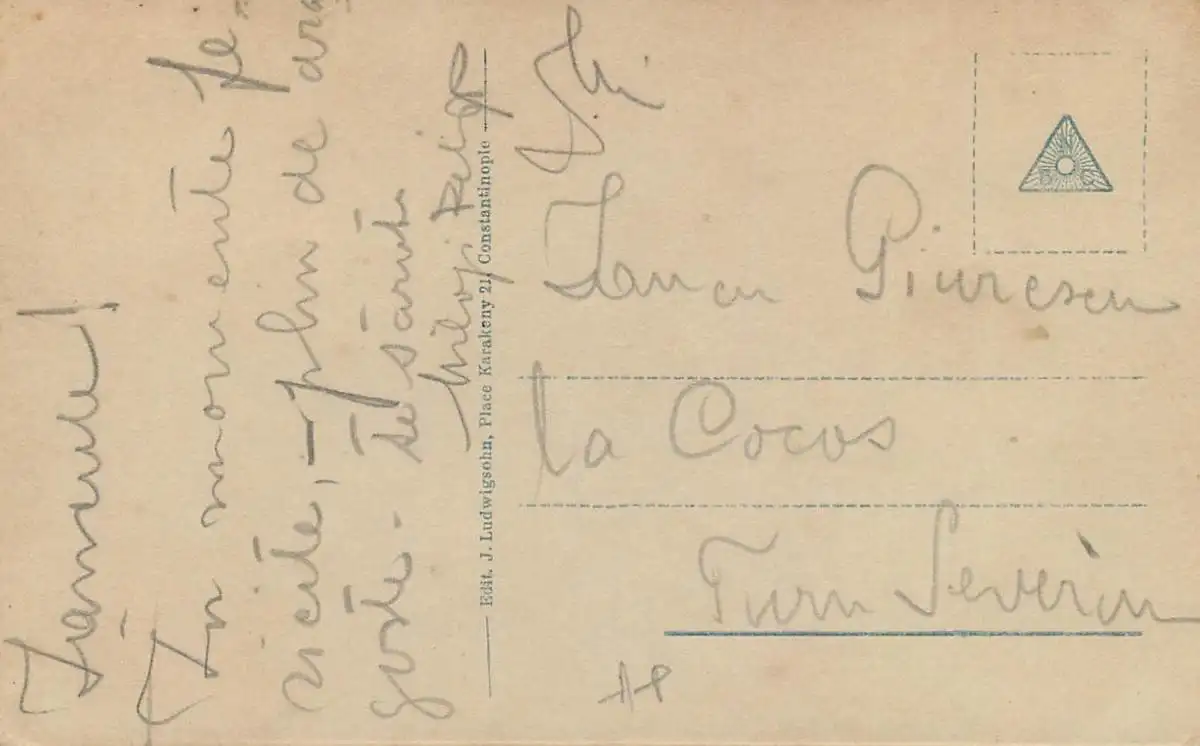 Iancule!
În momente fe-
ricite, – plin de dra
goste - te sărută
Edit. J. Ludwigsohn, Place Karakeuy 21, Constantinople
Iancu Giurescu
la Cocos
Turn Severin